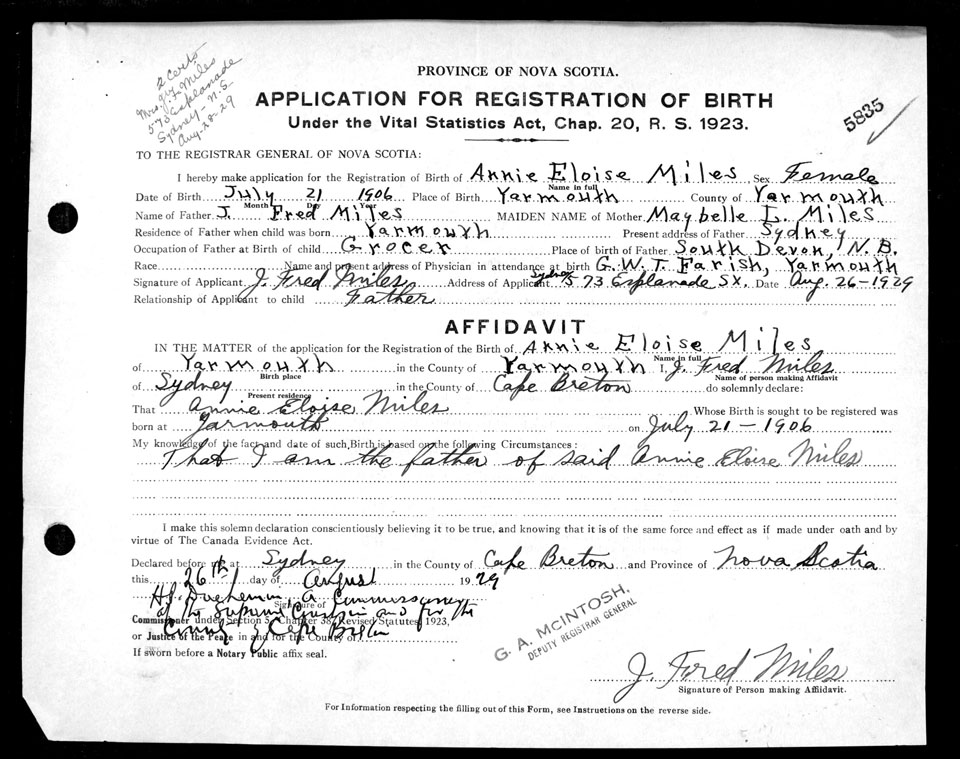 2 Certs
Mrs. J. F. Miles
573 Esplanade
Sydney - N.S.
Aug-28-29
PROVINCE OF NOVA SCOTIA.
APPLICATION FOR REGISTRATION OF BIRTH
Under the Vital Statistics Act, Chap. 20, R. S. 1923.
5835
TO THE REGISTRAR GENERAL OF NOVA SCOTIA:
I hereby make application for the Registration of Birth of Annie Eloise Miles Sex Female
Name in full
Date of Birth July 21 1906 Place of Birth Yarmouth County of Yarmouth
Month Day Year
Name of Father J. Fred Miles MAIDEN NAME of Mother Maybelle L. Miles
Residence of Father when child was born Yarmouth Present address of Father Sydney
Occupation of Father at Birth of child Grocer Place of birth of Father South Devon, N.B.
Race Name and present address of Physician in attendance at birth G. W. T. Farish, Yarmouth
Signature of Applicant J. Fred Miles Address of Applicant Sydney 573 Esplanade Date Aug. 26-1929
Relationship of Applicant to child Father
AFFIDAVIT
IN THE MATTER of the application for the Registration of the Birth of Annie Eloise Miles
Name in full
of Yarmouth in the County of Yarmouth I, J. Fred Miles
Birth place Name of person making Affidavit
of Sydney in the County of Cape Breton do solemnly declare:
Present residence
That Annie Eloise Miles Whose Birth is sought to be registered was
born at Yarmouth on July 21-1906
My knowledge of the fact and date of such Birth is based on the following Circumstances:
That I am the father of said Annie Eloise Miles
I make this solemn declaration conscientiously believing it to be true, and knowing that it is of the same force and effect as if made under oath and by
virtue of The Canada Evidence Act.
Declared before me at Sydney in the County of Cape Breton and Province of Nova Scotia
this 26th day of August 1929
H. J. Duchemin, A Commissioner of
Signature of
the Supreme Court in and for the
Commissioner under Section 5, Chapter 38, Revised Statutes, 1923,
County of Cape Breton
or Justice of the Peace in and for the County of
If sworn before a Notary Public affix seal.
G. A. McINTOSH,
DEPUTY REGISTRAR GENERAL
J. Fred Miles
Signature of Person making Affidavit.
For Information respecting the filling out of this Form, see Instructions on the reverse side.